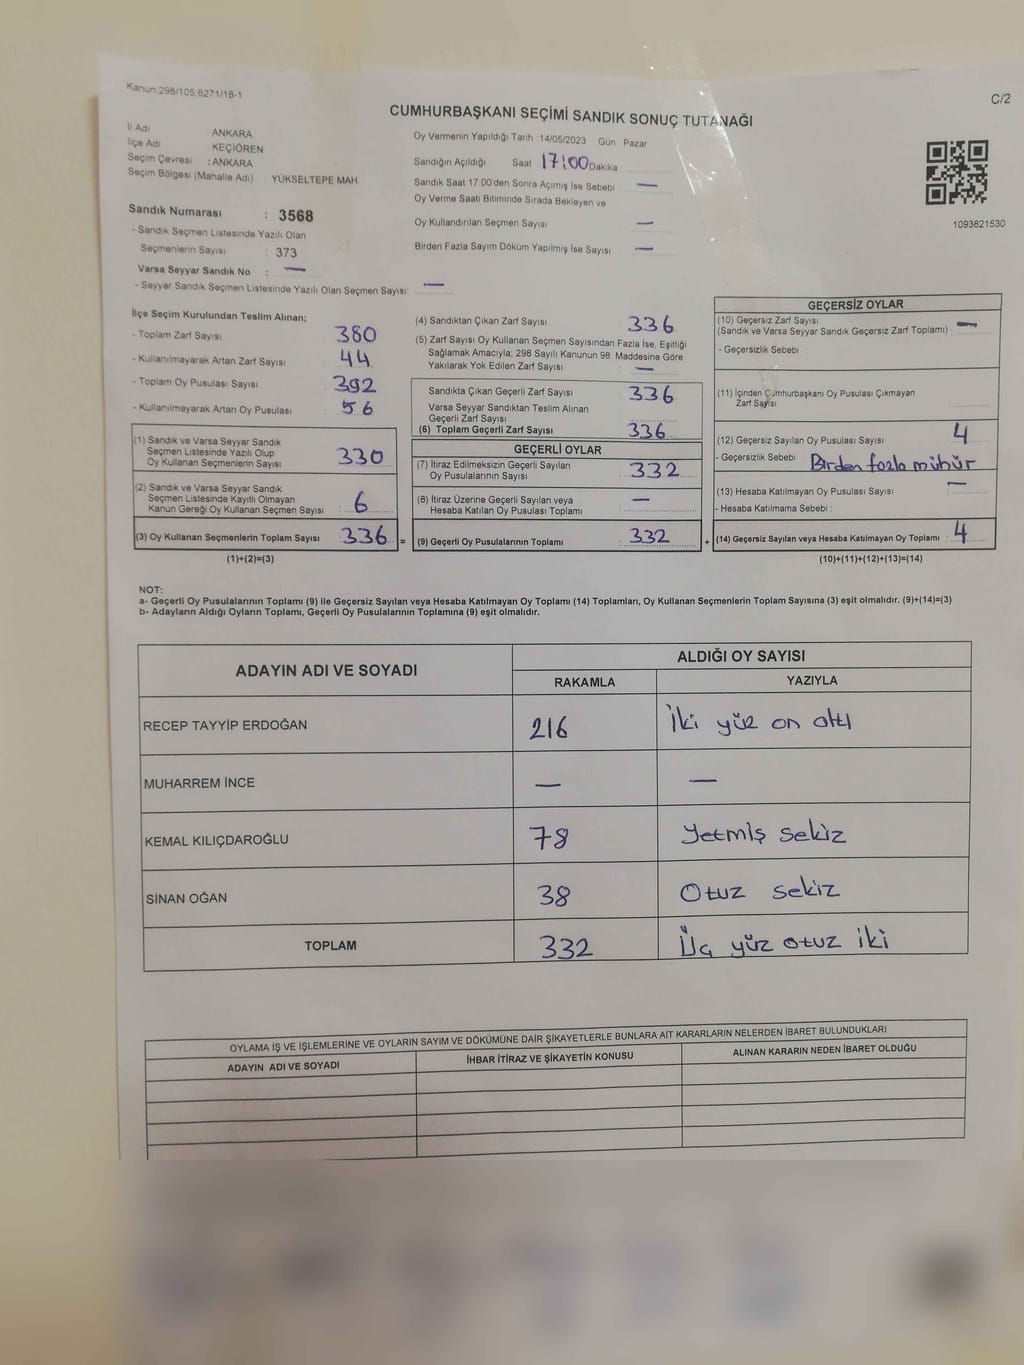 Kanun:298/105,6271/18-1
C/2
CUMHURBAŞKANI SEÇİMİ SANDIK SONUÇ TUTANAĞI
İl Adı ANKARA
İlçe Adı KEÇİÖREN
Seçim Çevresi : ANKARA
Seçim Bölgesi (Mahalle Adı) YÜKSELTEPE MAH.
Sandık Numarası : 3568
- Sandık Seçmen Listesinde Yazılı Olan
Seçmenlerin Sayısı : 373
Varsa Seyyar Sandık No : —
- Seyyar Sandık Seçmen Listesinde Yazılı Olan Seçmen Sayısı: —
Oy Vermenin Yapıldığı Tarih 14/05/2023 Gün : Pazar
Sandığın Açıldığı Saat 17:00 Dakika
Sandık Saat 17:00'den Sonra Açımış İse Sebebi —
Oy Verme Saati Bitiminde Sırada Bekleyen ve
Oy Kullandırılan Seçmen Sayısı : —
Birden Fazla Sayım Döküm Yapılmış İse Sayısı : —
1093821530
İlçe Seçim Kurulundan Teslim Alınan;
- Toplam Zarf Sayısı : 380
- Kullanılmayarak Artan Zarf Sayısı : 44
- Toplam Oy Pusulası Sayısı : 392
- Kullanılmayarak Artan Oy Pusulası : 56
(1) Sandık ve Varsa Seyyar Sandık
Seçmen Listesinde Yazılı Olup
Oy Kullanan Seçmenlerin Sayısı : 330
(2) Sandık ve Varsa Seyyar Sandık
Seçmen Listesinde Kayıtlı Olmayan
Kanun Gereği Oy Kullanan Seçmen Sayısı : 6
(3) Oy Kullanan Seçmenlerin Toplam Sayısı : 336 =
(1)+(2)=(3)
(4) Sandıktan Çıkan Zarf Sayısı : 336
(5) Zarf Sayısı Oy Kullanan Seçmen Sayısından Fazla İse, Eşitliği
Sağlamak Amacıyla; 298 Sayılı Kanunun 98. Maddesine Göre
Yakılarak Yok Edilen Zarf Sayısı : —
Sandıkta Çıkan Geçerli Zarf Sayısı : 336
Varsa Seyyar Sandıktan Teslim Alınan
Geçerli Zarf Sayısı :
(6) Toplam Geçerli Zarf Sayısı : 336
GEÇERLİ OYLAR
(7) İtiraz Edilmeksizin Geçerli Sayılan
Oy Pusulalarının Sayısı : 332
(8) İtiraz Üzerine Geçerli Sayılan veya
Hesaba Katılan Oy Pusulası Toplamı : —
(9) Geçerli Oy Pusulalarının Toplamı : 332 +
GEÇERSİZ OYLAR
(10) Geçersiz Zarf Sayısı
(Sandık ve Varsa Seyyar Sandık Geçersiz Zarf Toplamı) : —
- Geçersizlik Sebebi :
(11) İçinden Cumhurbaşkanı Oy Pusulası Çıkmayan
Zarf Sayısı :
(12) Geçersiz Sayılan Oy Pusulası Sayısı : 4
- Geçersizlik Sebebi : Birden fazla mühür
(13) Hesaba Katılmayan Oy Pusulası Sayısı : —
- Hesaba Katılmama Sebebi :
(14) Geçersiz Sayılan veya Hesaba Katılmayan Oy Toplamı : 4
(10)+(11)+(12)+(13)=(14)
NOT:
a- Geçerli Oy Pusulalarının Toplamı (9) ile Geçersiz Sayılan veya Hesaba Katılmayan Oy Toplamı (14) Toplamları, Oy Kullanan Seçmenlerin Toplam Sayısına (3) eşit olmalıdır. (9)+(14)=(3)
b- Adayların Aldığı Oyların Toplamı, Geçerli Oy Pusulalarının Toplamına (9) eşit olmalıdır.
ADAYIN ADI VE SOYADI ALDIĞI OY SAYISI
RAKAMLA YAZIYLA
RECEP TAYYİP ERDOĞAN 216 İki yüz on altı
MUHARREM İNCE — —
KEMAL KILIÇDAROĞLU 78 Yetmiş sekiz
SİNAN OĞAN 38 Otuz sekiz
TOPLAM 332 Üç yüz otuz iki
OYLAMA İŞ VE İŞLEMLERİNE VE OYLARIN SAYIM VE DÖKÜMÜNE DAİR ŞİKAYETLERLE BUNLARA AİT KARARLARIN NELERDEN İBARET BULUNDUKLARI
ADAYIN ADI VE SOYADI İHBAR İTİRAZ VE ŞİKAYETİN KONUSU ALINAN KARARIN NEDEN İBARET OLDUĞU